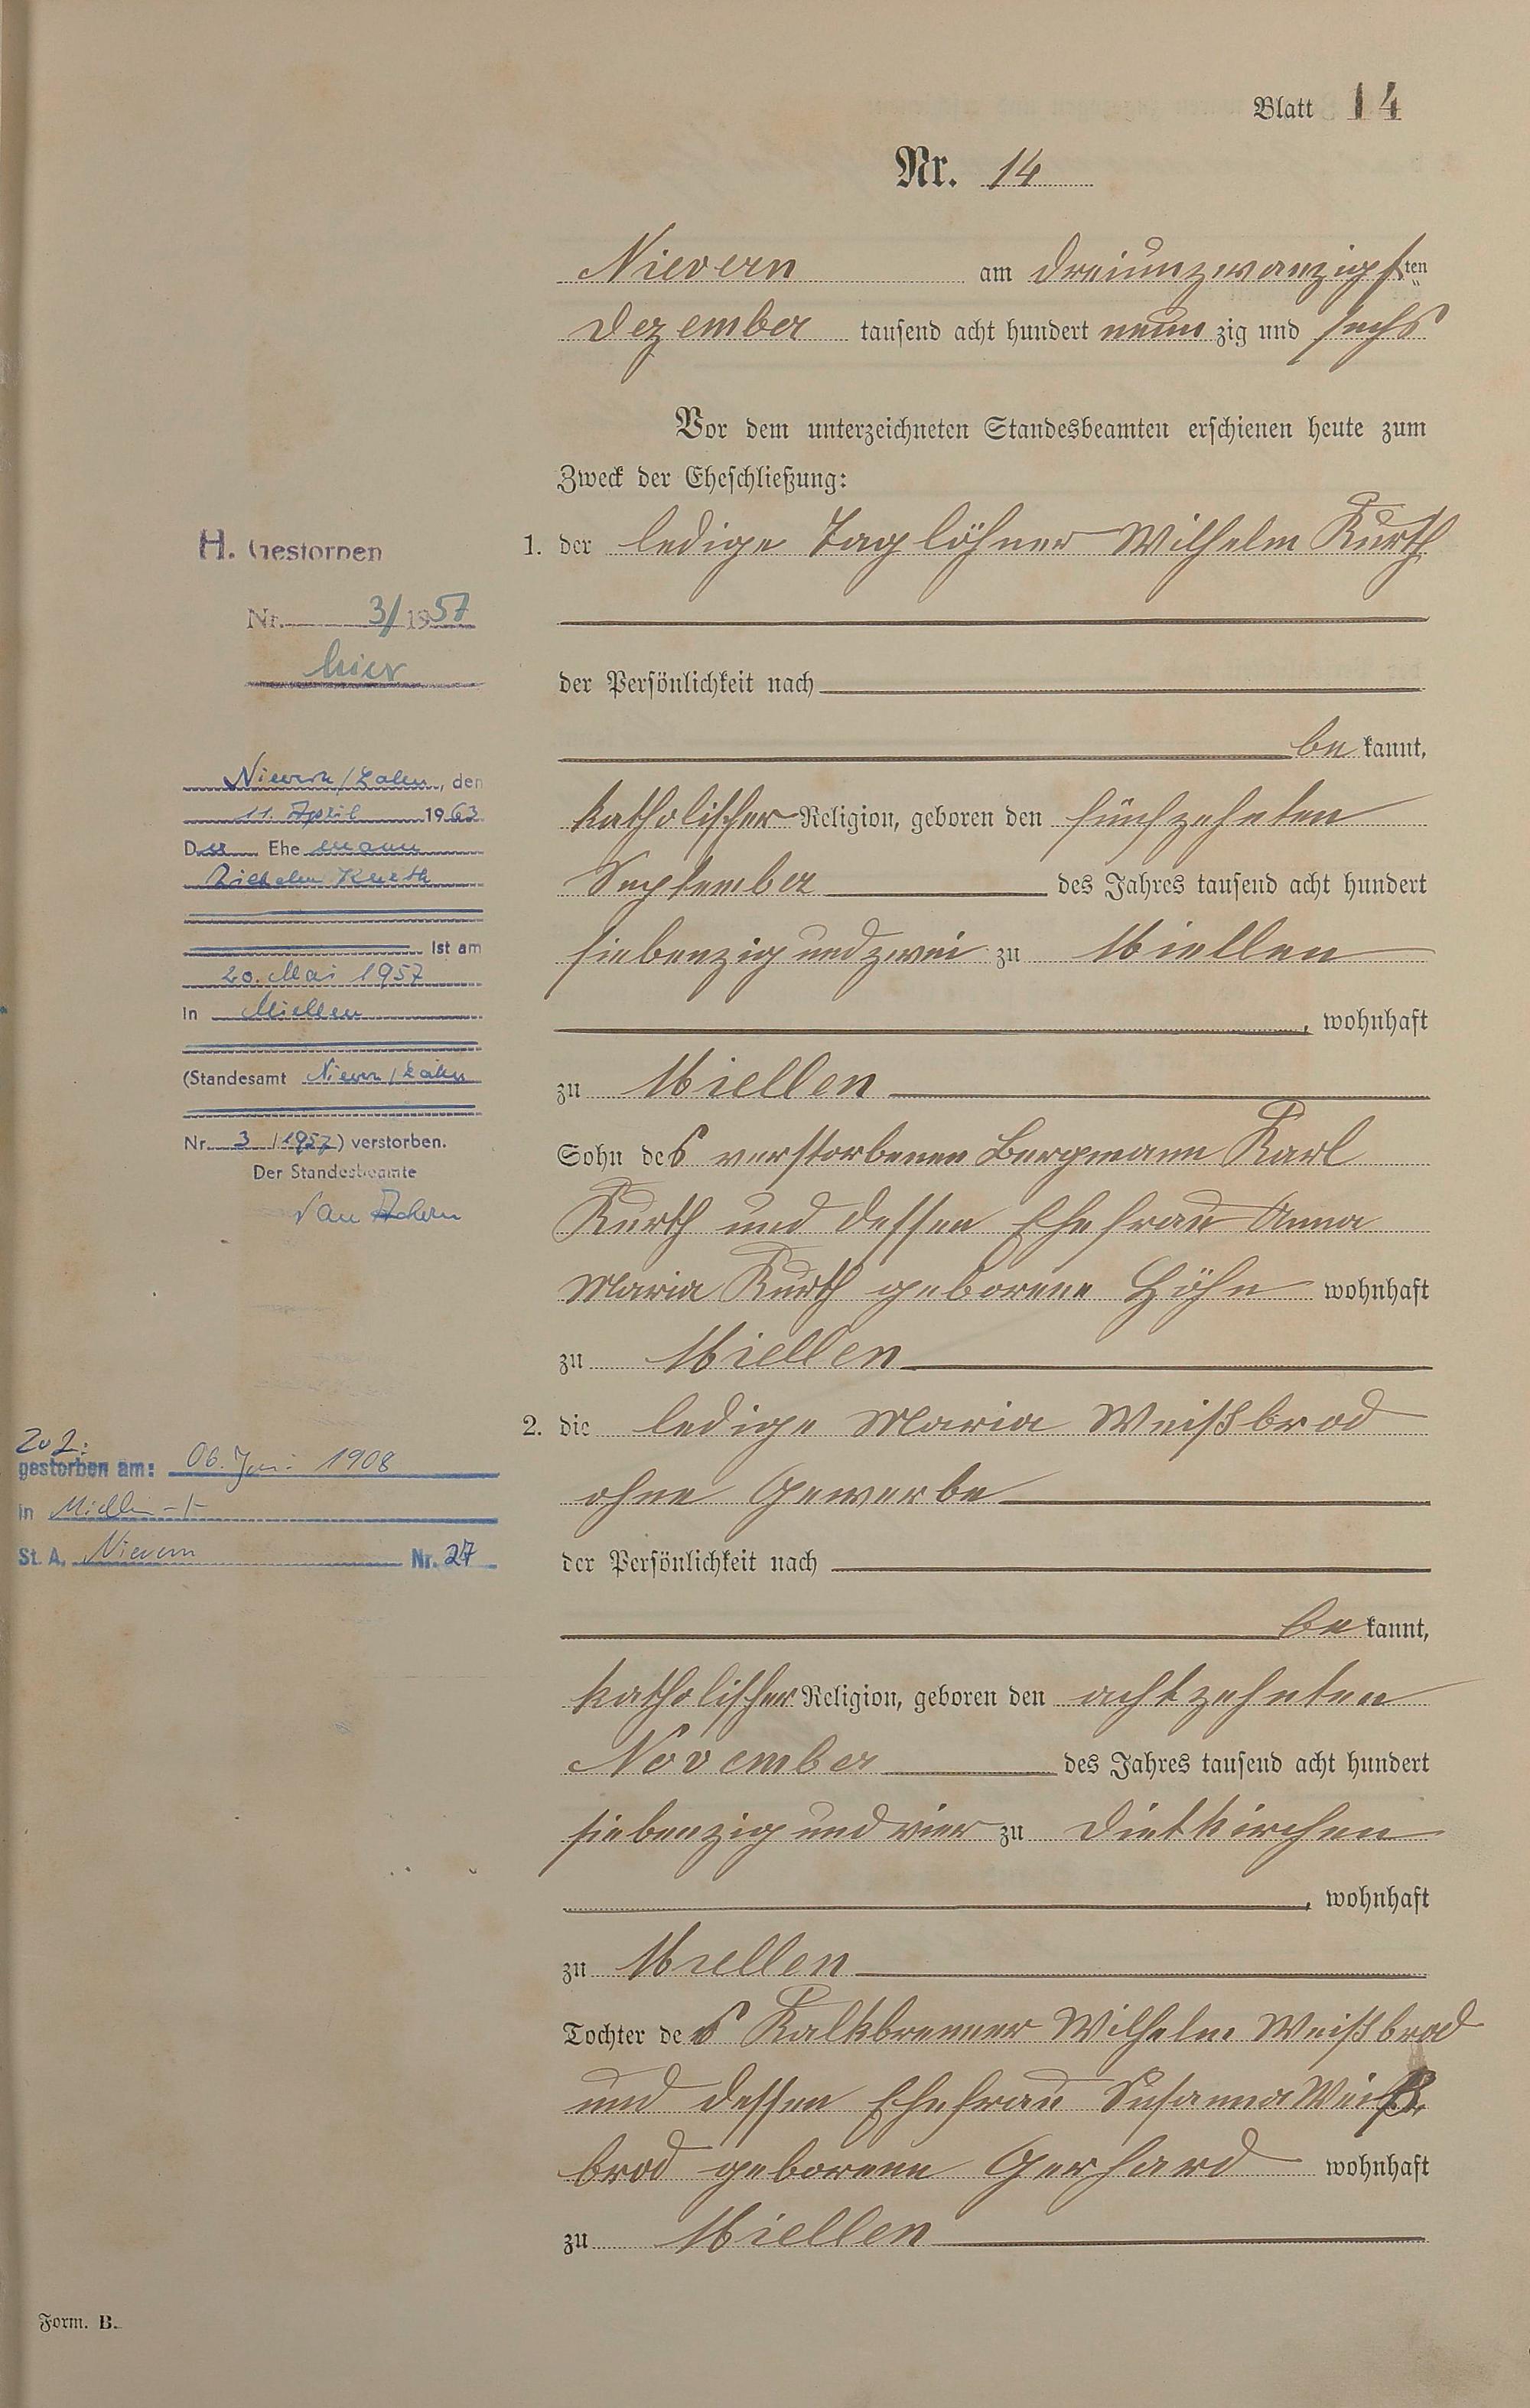 Blatt 14
Nr. 14
Nievern am dreiunzwanzigsten
Dezember tausend acht hundert neunzig und sechs
Vor dem unterzeichneten Standesbeamten erschienen heute zum
Zweck der Eheschließung:
1. der ledige Taglöhner Wilhelm Kurth
der Persönlichkeit nach
bekannt,
katholischer Religion, geboren den fünfzehnten
September des Jahres tausend acht hundert
siebenzig und zwei zu Miellen
, wohnhaft
zu Miellen
Sohn des verstorbenen Bergmann Karl
Kurth und dessen Ehefrau Anna
Maria Kurth geborene Höhn wohnhaft
zu Miellen
2. die ledige Maria Weißbrod
ohne Gewerbe
der Persönlichkeit nach
bekannt,
katholischer Religion, geboren den achtzehnten
November des Jahres tausend acht hundert
siebenzig und vier zu Dietkirchen
, wohnhaft
zu Miellen
Tochter des Kalkbrenner Wilhelm Weißbrod
und dessen Ehefrau Susanna Weiß
brod geborene Gerhard wohnhaft
zu Miellen
H. Gestorben
Nr. 3/1957
hier
Nievern/Lahn, den
11. April 1963
Der Ehemann
Wilhelm Kurth
ist am
20. Mai 1957
in Miellen
(Standesamt Nievern/Lahn
Nr. 3/1957) verstorben.
Der Standesbeamte
Zu 2:
gestorben am: 06. Juni 1908
in Miellen
St. A. Nievern Nr. 27
Form. B.